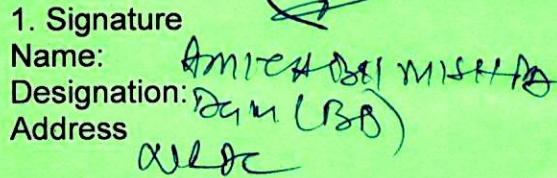 1. Signature
Name: AMITABH MISHRA
Designation: DGM (BD)
Address